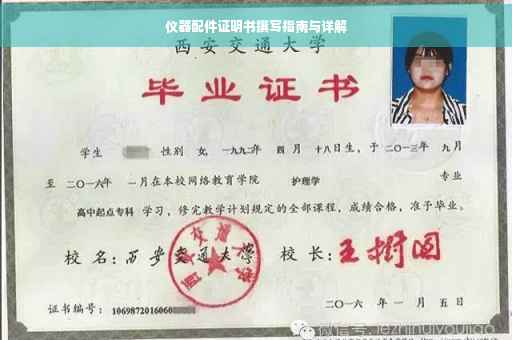 仪器配件证明书撰写指南与详解
西安交通大学
毕业证书
学生 性别 女, 一九九二年 四 月 十八日生, 于 二〇一三年 九月
至 二〇一六年 一月在本校网络教育学院 护理学 专业
高中起点专科 学习, 修完教学计划规定的全部课程, 成绩合格, 准予毕业。
校 名: 西安交通大学 校 长: 王树国
证书编号: 1069872016060
二〇一六 年 一 月 五 日
微信号: lezhihuiyoujiao